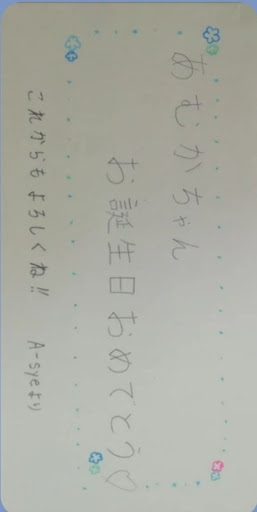 あむかちゃん
お誕生日おめでとう♡
これからもよろしくね!!
A-syeより